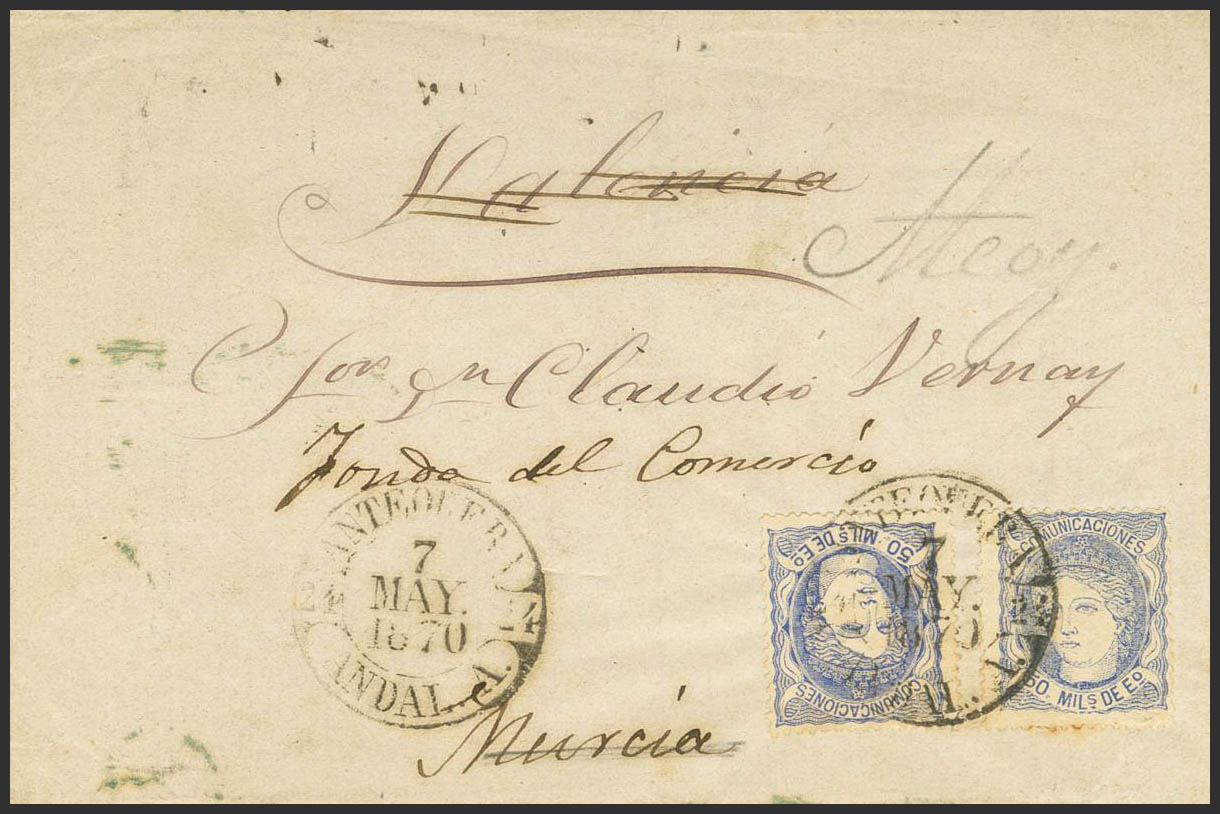 Valencia
Alcoy.
Sor. Dn Claudio Vernay
Fonda del Comercio
ANTEQUERA
7
MAY.
1870
ANDAL. A.
Murcia
ANTEQUERA
7
MAY.
1870
50 MILS DE EO
COMUNICACIONES
COMUNICACIONES
50 MILS DE EO